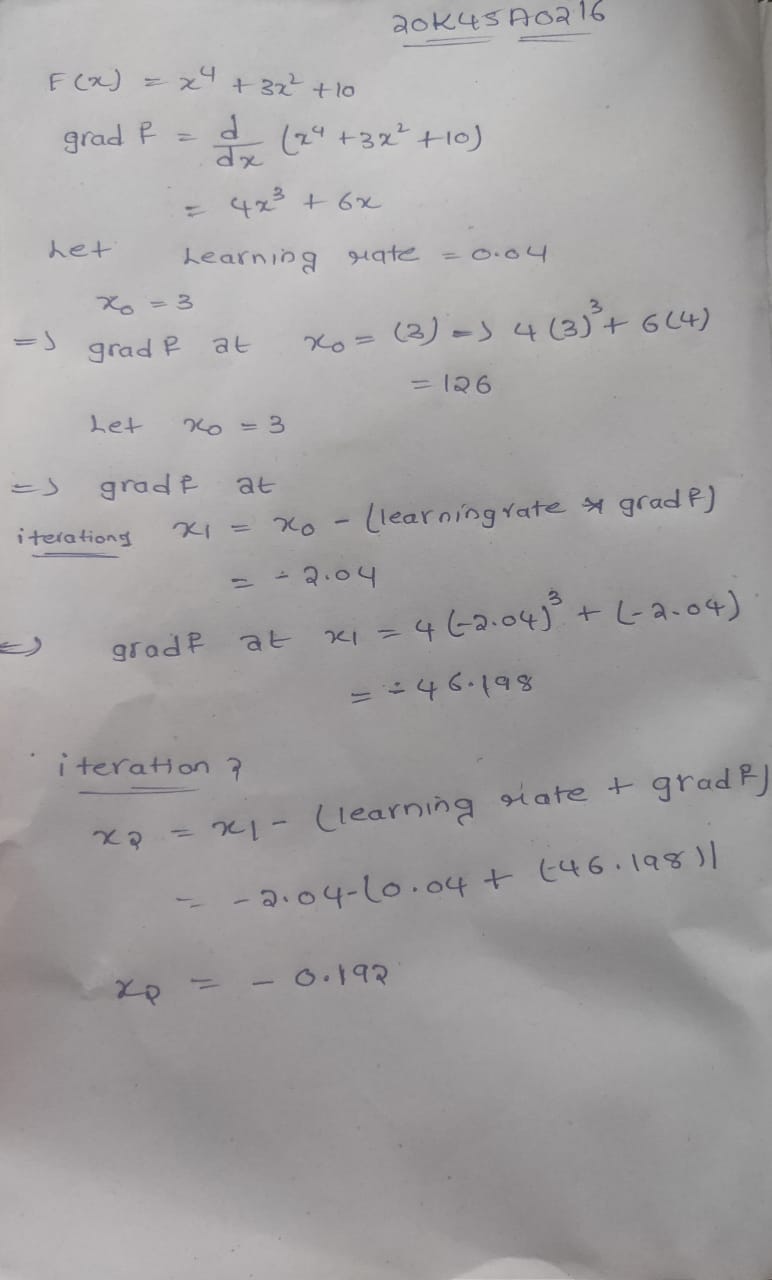 20K45A0216
F(x) = x⁴ + 3x² + 10
grad f = d/dx (x⁴ + 3x² + 10)
= 4x³ + 6x
Let Learning rate = 0.04
x₀ = 3
=> grad f at x₀ = (3) => 4(3)³ + 6(4)
= 126
Let x₀ = 3
=> grad f at
iterations x₁ = x₀ - (learning rate * grad f)
= -2.04
=> grad f at x₁ = 4(-2.04)³ + (-2.04)
= -46.198
iteration 2
x₂ = x₁ - (learning rate + grad f)
= -2.04-(0.04 + (-46.198))
x₂ = - 0.192